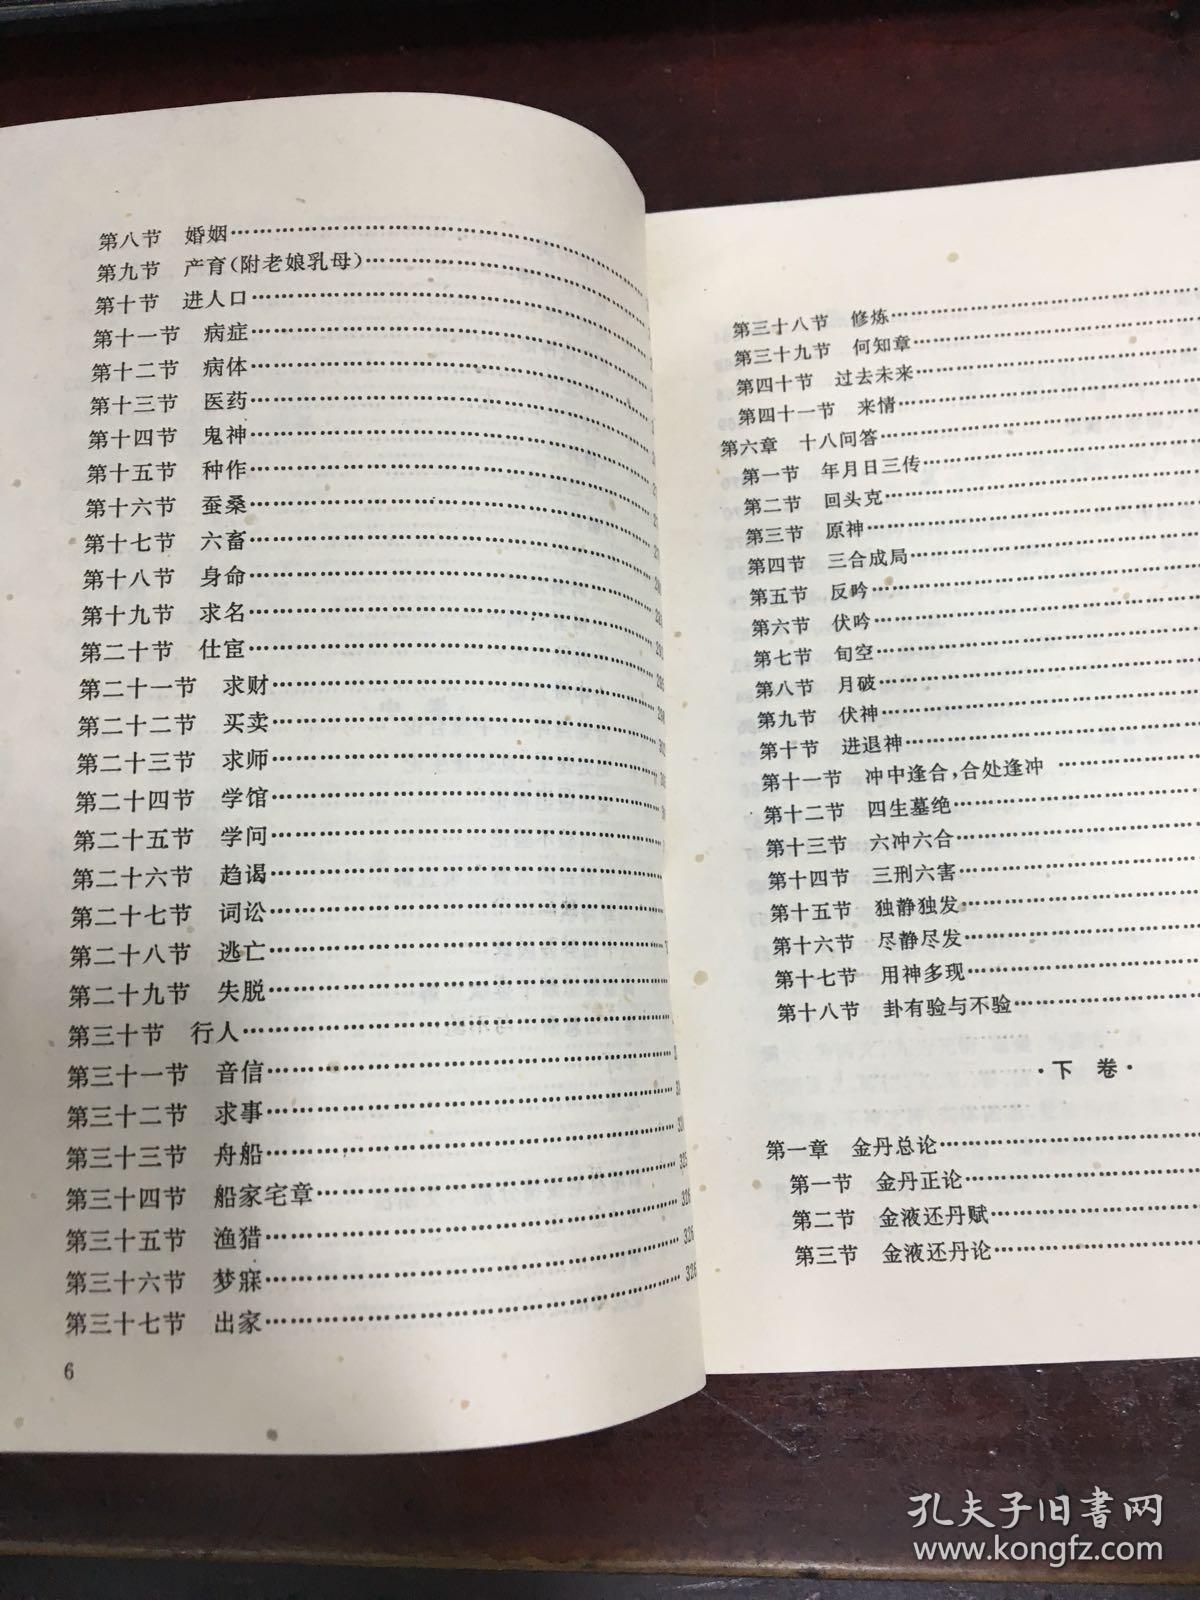 第八节 婚姻
第九节 产育(附老娘乳母)
第十节 进人口
第十一节 病症
第十二节 病体
第十三节 医药
第十四节 鬼神
第十五节 种作
第十六节 蚕桑
第十七节 六畜
第十八节 身命
第十九节 求名
第二十节 仕宦
第二十一节 求财
第二十二节 买卖
第二十三节 求师
第二十四节 学馆
第二十五节 学问
第二十六节 趋谒
第二十七节 词讼
第二十八节 逃亡
第二十九节 失脱
第三十节 行人
第三十一节 音信
第三十二节 求事
第三十三节 舟船
第三十四节 船家宅章 325
第三十五节 渔猎 326
第三十六节 梦寐 326
第三十七节 出家 326
6
第三十八节 修炼
第三十九节 何知章
第四十节 过去未来
第四十一节 来情
第六章 十八问答
第一节 年月日三传
第二节 回头克
第三节 原神
第四节 三合成局
第五节 反吟
第六节 伏吟
第七节 旬空
第八节 月破
第九节 伏神
第十节 进退神
第十一节 冲中逢合,合处逢冲
第十二节 四生墓绝
第十三节 六冲六合
第十四节 三刑六害
第十五节 独静独发
第十六节 尽静尽发
第十七节 用神多现
第十八节 卦有验与不验
·下 卷·
第一章 金丹总论
第一节 金丹正论
第二节 金液还丹赋
第三节 金液还丹论
孔夫子旧書网
www.kongfz.com